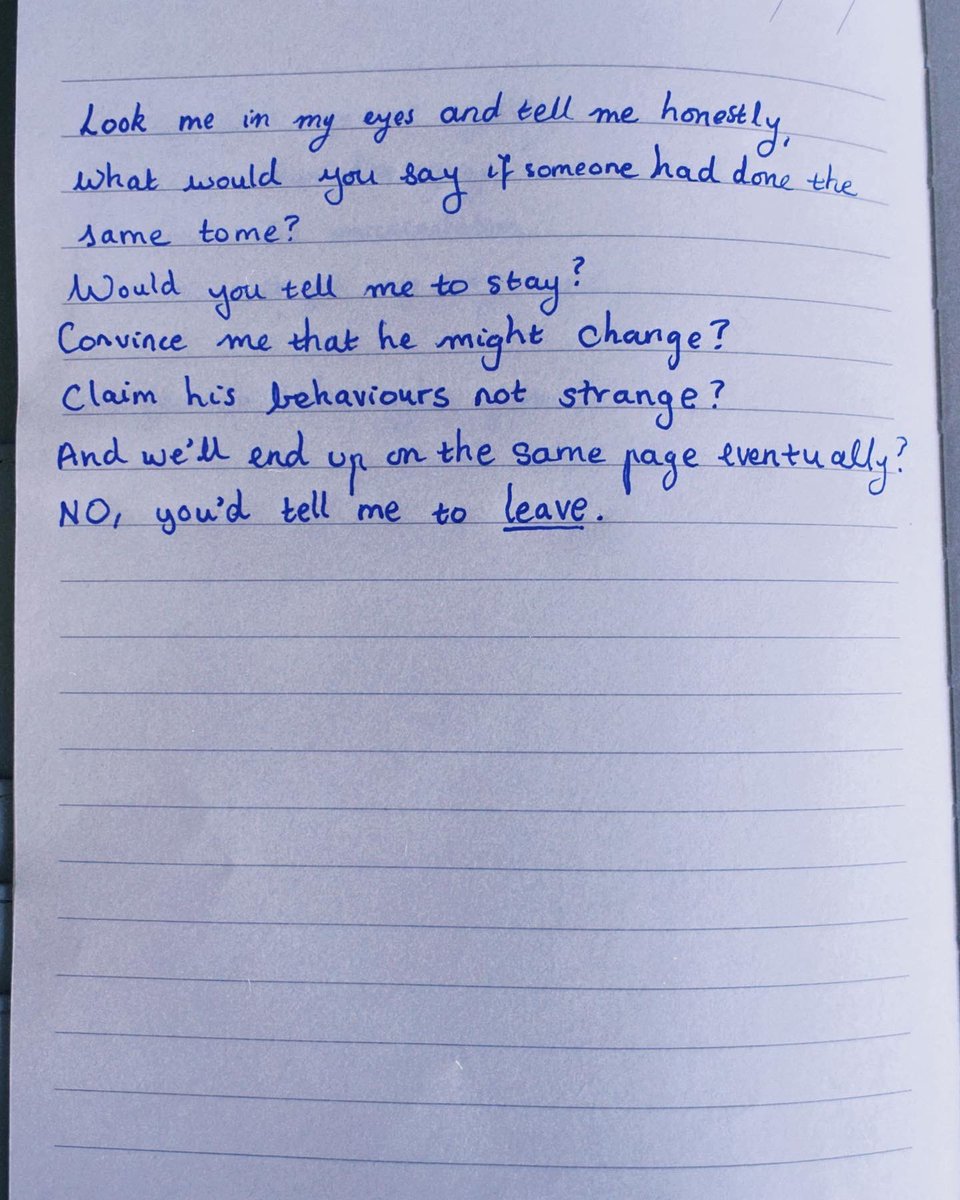 Look me in my eyes and tell me honestly,
What would you say if someone had done the
same to me?
Would you tell me to stay?
Convince me that he might change?
Claim his behaviours not strange?
And we'll end up on the same page eventually?
NO, you'd tell me to leave.